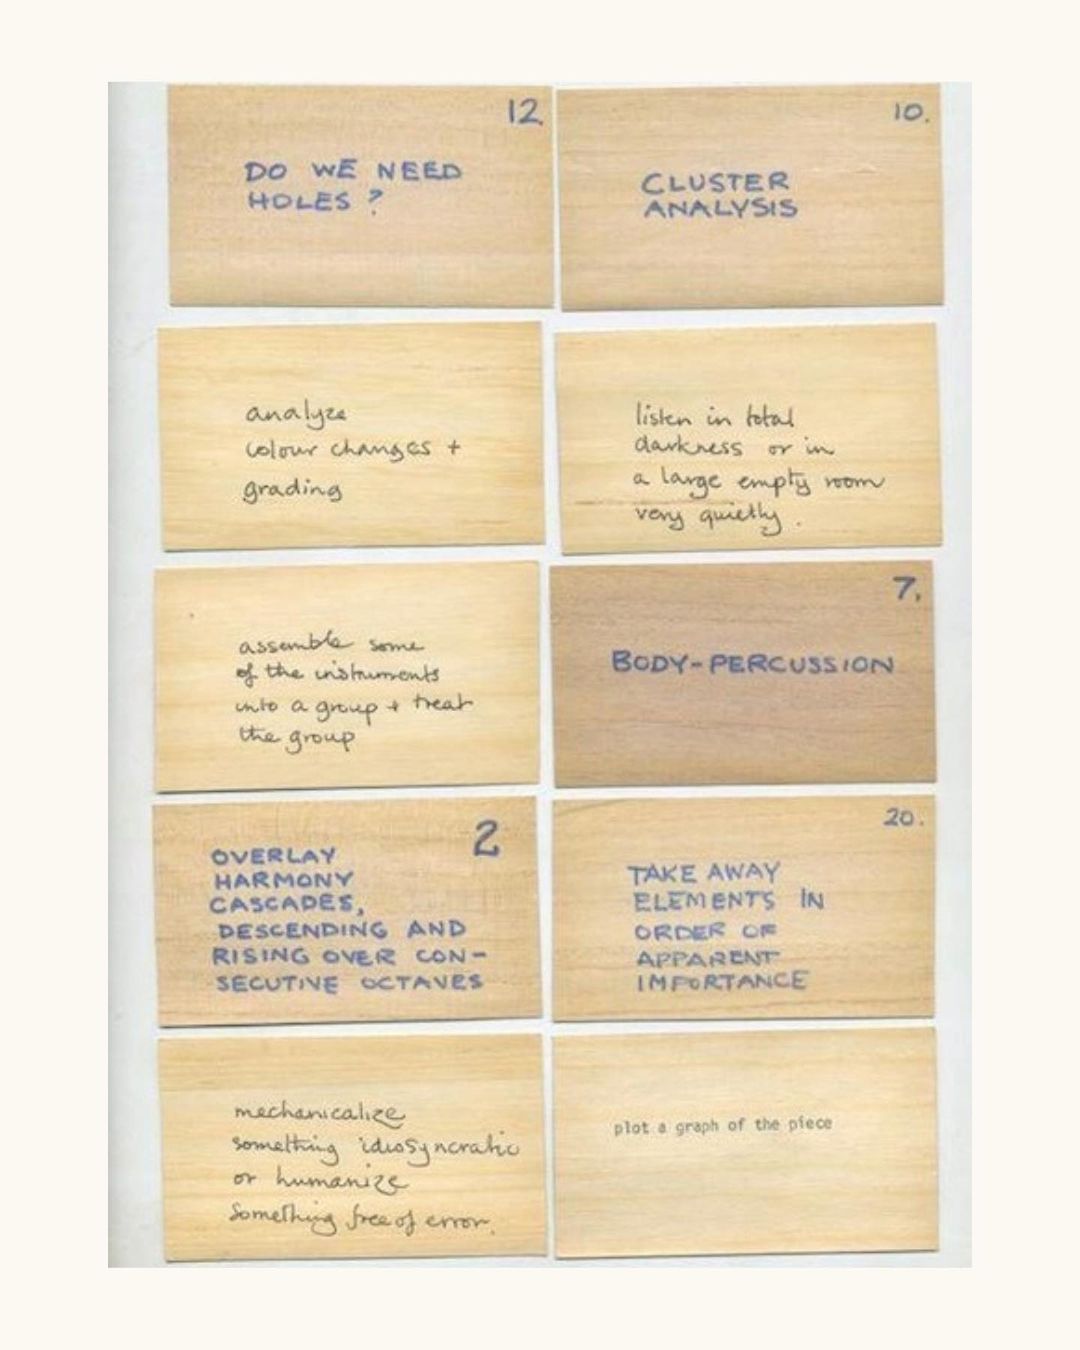 12.
DO WE NEED
HOLES ?
10.
CLUSTER
ANALYSIS
analyze
colour changes +
grading
listen in total
darkness or in
a large empty room
very quietly.
assemble some
of the instruments
into a group + treat
the group
7.
BODY-PERCUSSION
2
OVERLAY
HARMONY
CASCADES,
DESCENDING AND
RISING OVER CON-
SECUTIVE OCTAVES
20.
TAKE AWAY
ELEMENTS IN
ORDER OF
APPARENT
IMPORTANCE
mechanicalize
something idiosyncratic
or humanize
something free of error.
plot a graph of the piece